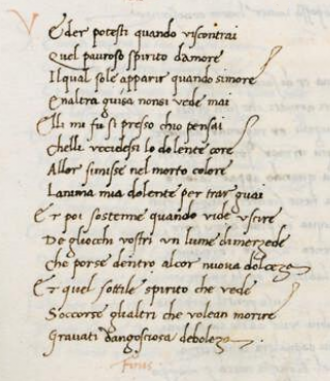 Veder potesti quando viscontrai
Quel pauroso spirito damore
Ilqual sole apparir quando simore
Enaltra guisa nonsi vede mai
Elli mi fu si presso chio pensai
Chelli uccidessi lo dolente core
Allor simisse nel morto colore
Lanima mia dolente per trar guai
Et poi sostenne quando vide uscire
De gliocchi vostri un lume dimerzede
Che porse dentro alcor nuova dolceza
Et quel sottile spirito che vede
Soccorse glialtri che volean morire
Gravati dangosciosa deboleza.
Finis.